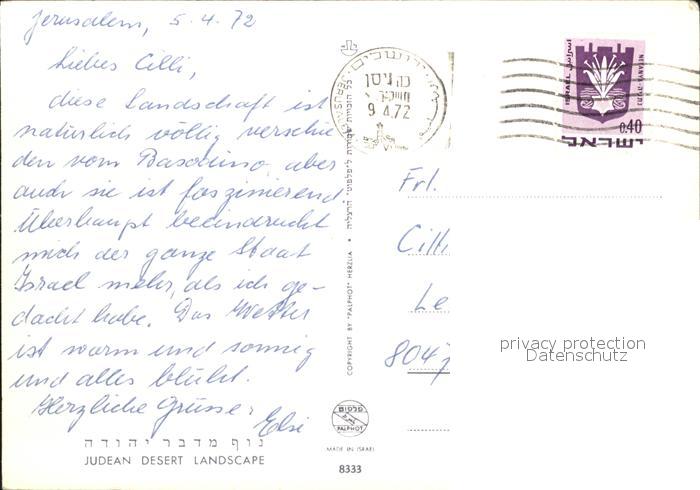 Jerusalem, 5.4.72
Liebes Cilli,
diese Landschaft ist
natürlich völlig verschie
den vom Basodino, aber
auch sie ist faszinierend
Überhaupt beeindruckt
mich der ganze Staat
Israel mehr, als ich ge-
dacht habe. Das Wetter
ist warm und sonnig
und alles blüht.
Herzliche Grüsse:
Elsi
נוף מדבר יהודה
JUDEAN DESERT LANDSCAPE
COPYRIGHT BY "PALPHOT" HERZLIA •
פלפוט
PALPHOT
MADE IN ISRAEL
8333
ירושלים
JERUSALEM
כה ניסן
9 4.72
ISRAEL
NETANYA
נתניה
0.40
ישראל
Frl.
Cilli
Le
8047
privacy protection
Datenschutz